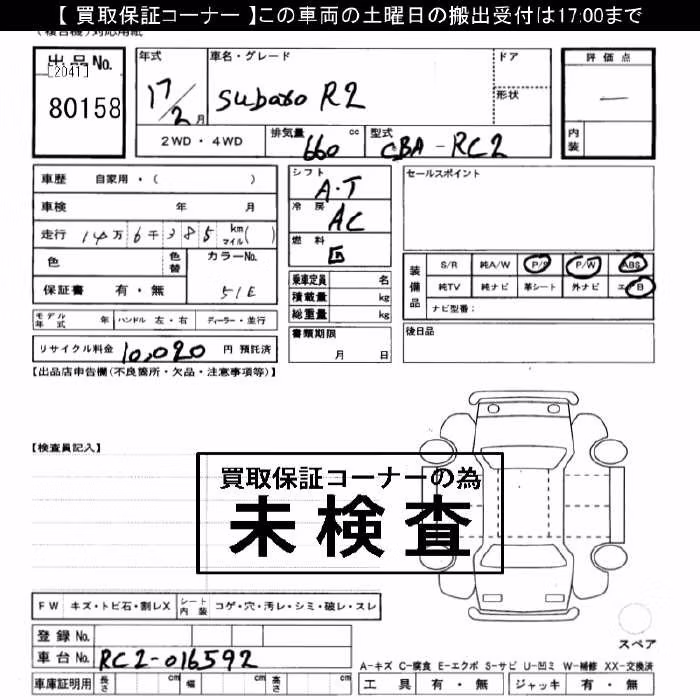 【 買取保証コーナー 】この車両の土曜日の搬出受付は17:00まで
出品No. [2041] 80158
年式 17/2月
車名・グレード Subaro R2
ドア
形状
評価点 —
内装
2WD・4WD 排気量 660 cc 型式 CBA-RC2
車歴 自家用・( )
車検 年 月
走行 14万 6千 385 km マイル( )
色 色替 カラーNo. 51E
保証書 有・無
モデル年式 年 ハンドル 左・右 ディーラー・並行
リサイクル料金 10,020 円 預託済
シフト A・T
冷房 AC
燃料 G
乗車定員 名
積載量 kg
総重量 kg
書類期限
月 日
セールスポイント
装備品 S/R 純A/W P/S P/W ABS
純TV 純ナビ 革シート 外ナビ エアB
ナビ型番:
後日品
【出品店申告欄(不良箇所・欠品・注意事項等)】
【検査員記入】
買取保証コーナーの為
未検査
FW キズ・トビ石・割レX シート内装 コゲ・穴・汚レ・シミ・破レ・スレ
登録No.
車台No. RC2-016592
車庫証明用 長さ cm 幅 cm 高さ cm
スペア
A-キズ C-腐食 E-エクボ S-サビ U-凹ミ W-補修 XX-交換済
工具 有・無 ジャッキ 有・無